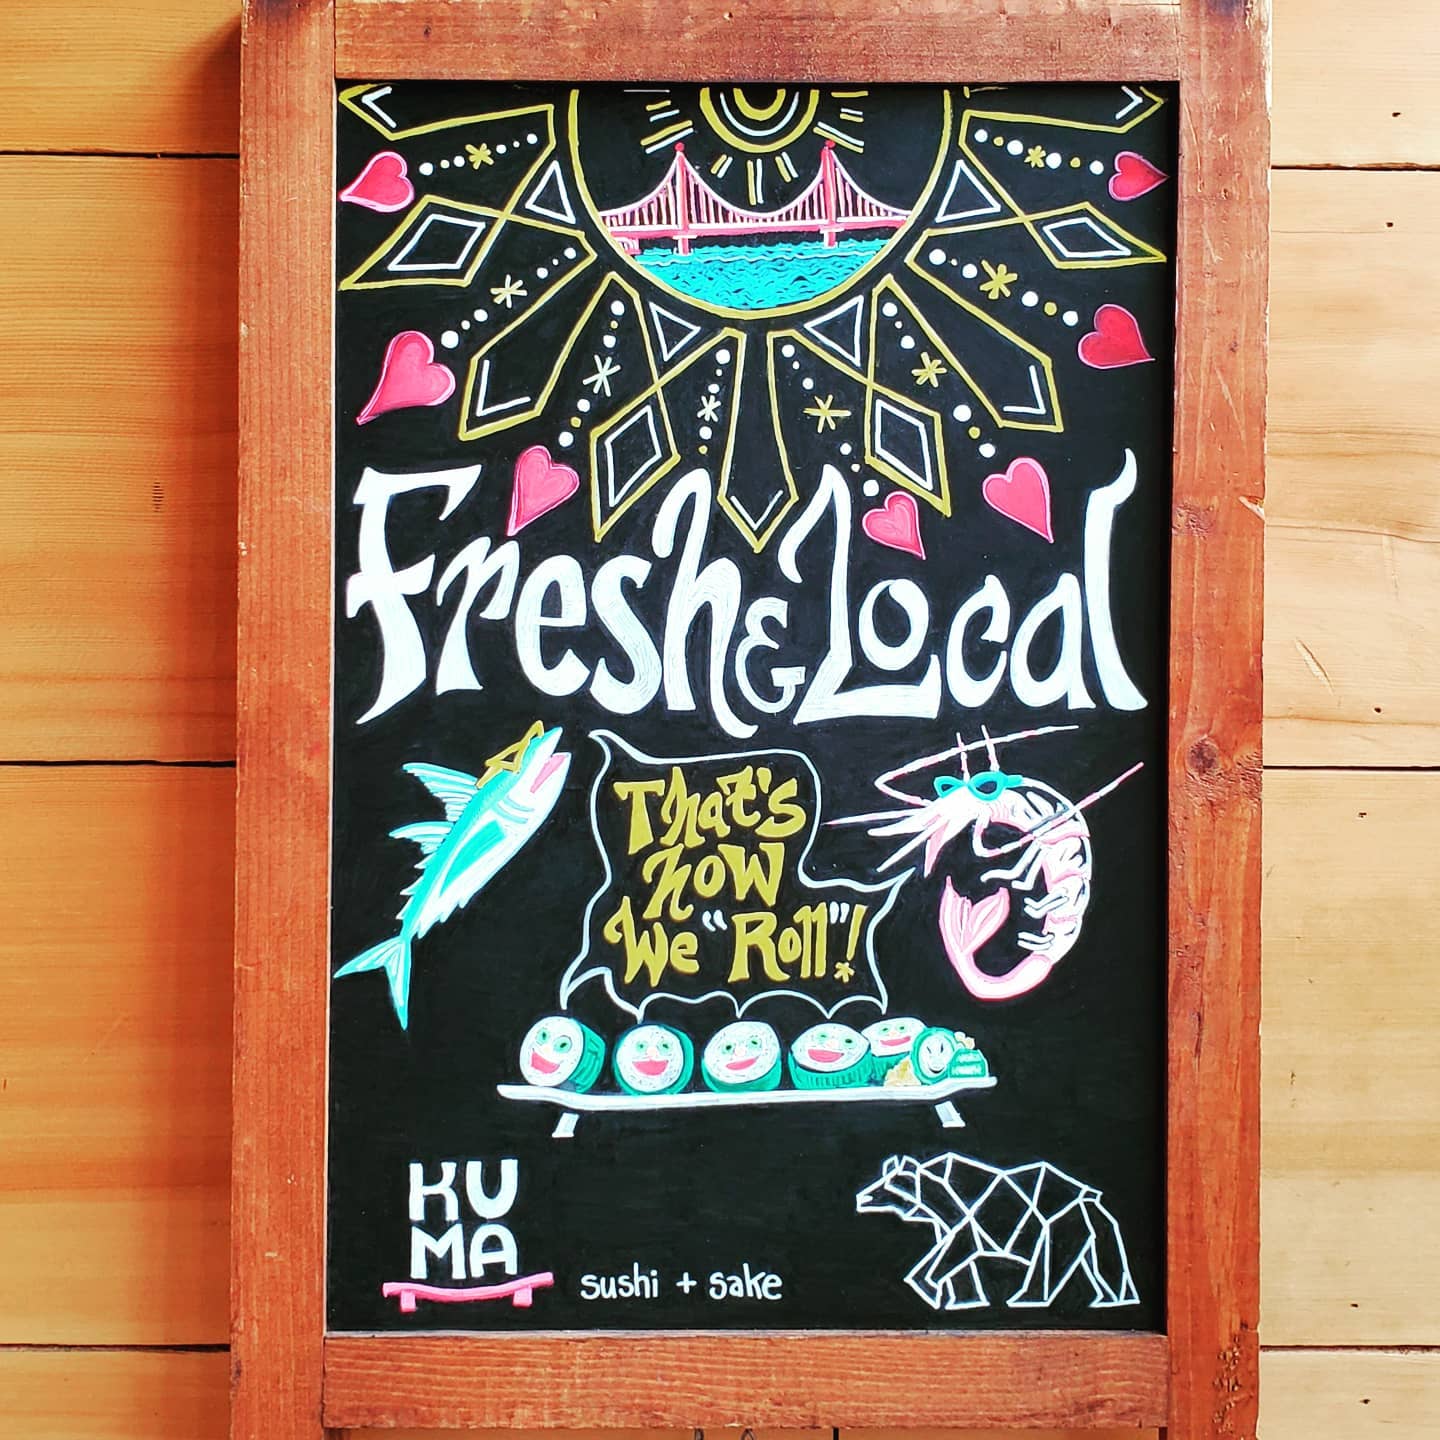 Fresh & Local
That's
how
We "Roll"!
KU
MA
sushi + sake